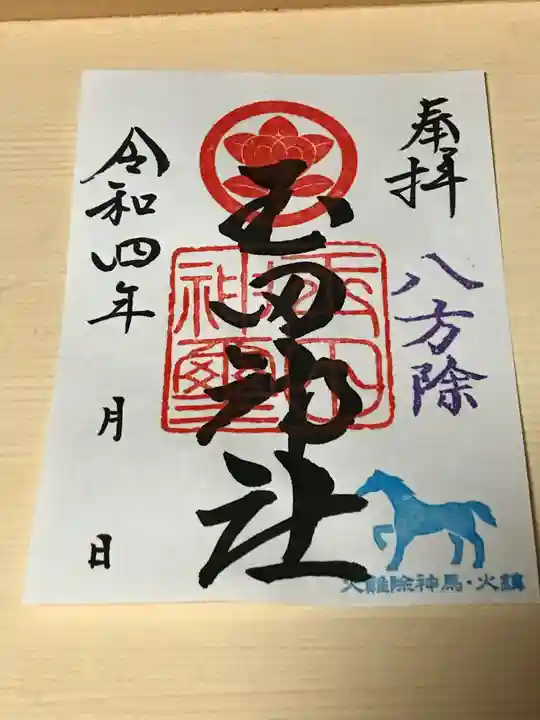 奉拝
八方除
玉田神社
令和四年 月 日
火難除神馬・火鎮